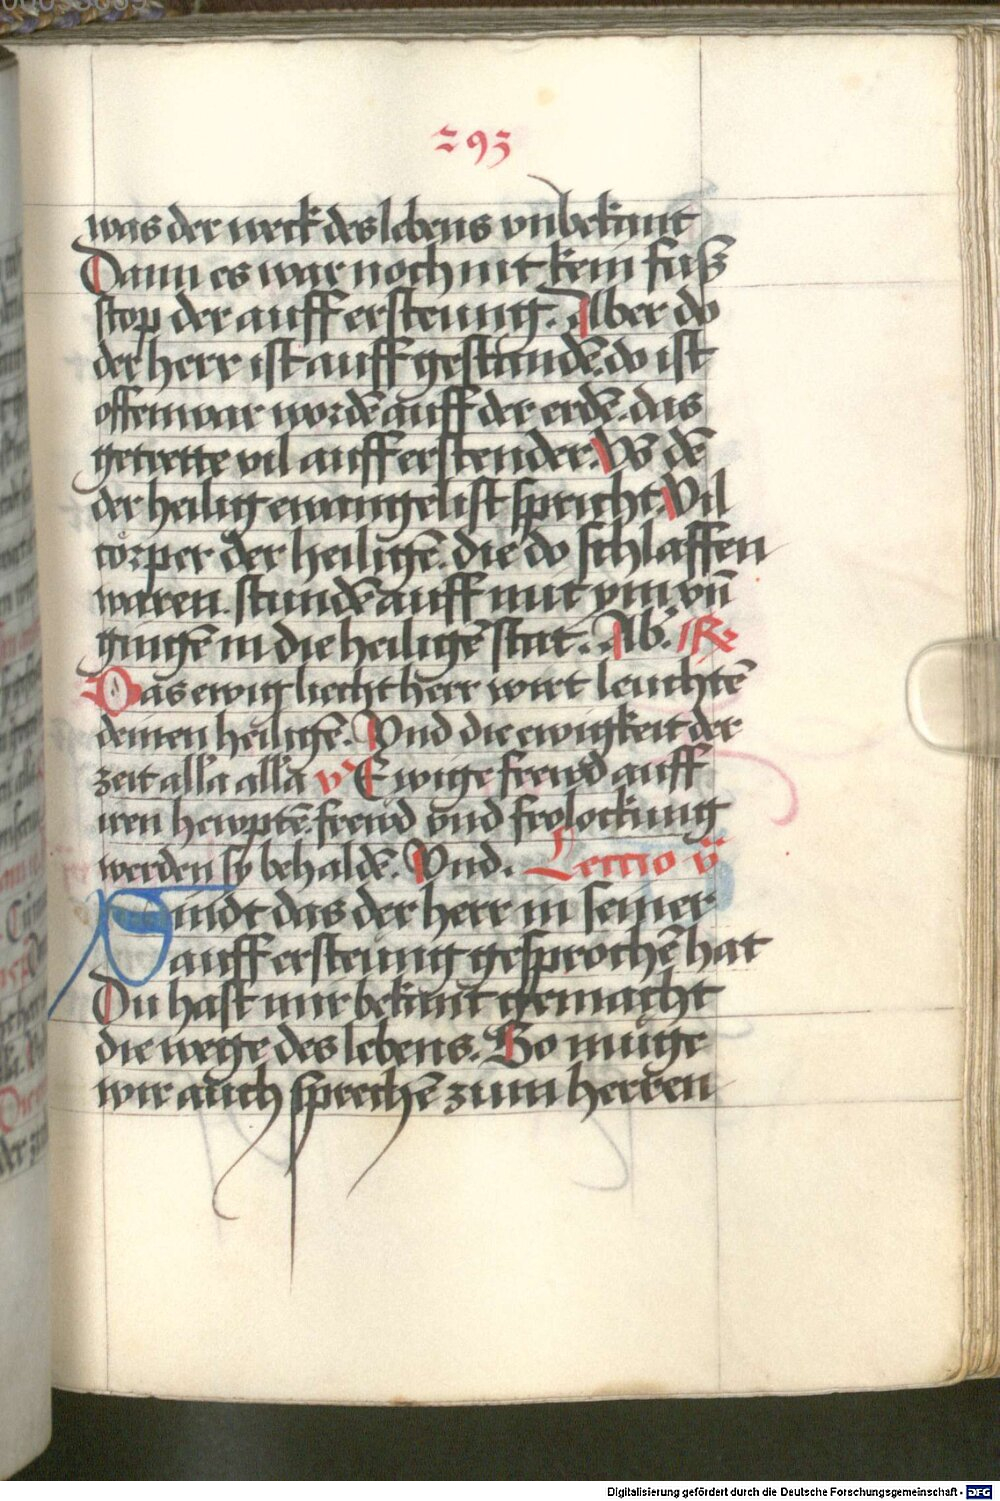 293
was der weck des lebens vnbekannt
Dann es war noch nit kein fuß
stop der aufferstenng. Aber do
der herr ist auff gestandē. do ist
offenwar wordē auff der erdē. das
getrette vil aufferstender. Wē dē
der heilig ewangelist spricht. Vil
corper der heiligē. die do schlaffen
waren. stundē auff mit ym vn̄
gingē in die heiligē stat. Ab.
Das ewig liecht herr wirt leuchtē
deinen heiligē. Vnd die ewigkeit der
zeit alla alla v Ewige frewd auff
iren hewptē. frewd vnd frolockung
werden sy behaldē. Vnd. Lectio v
Sindt das der herr in seiner
aufferstenng gesprochē hat
Du hast mir bekannt gemacht
die wege des lebens. So muge
wir auch sprechē zum herren
Digitalisierung gefördert durch die Deutsche Forschungsgemeinschaft - DFG